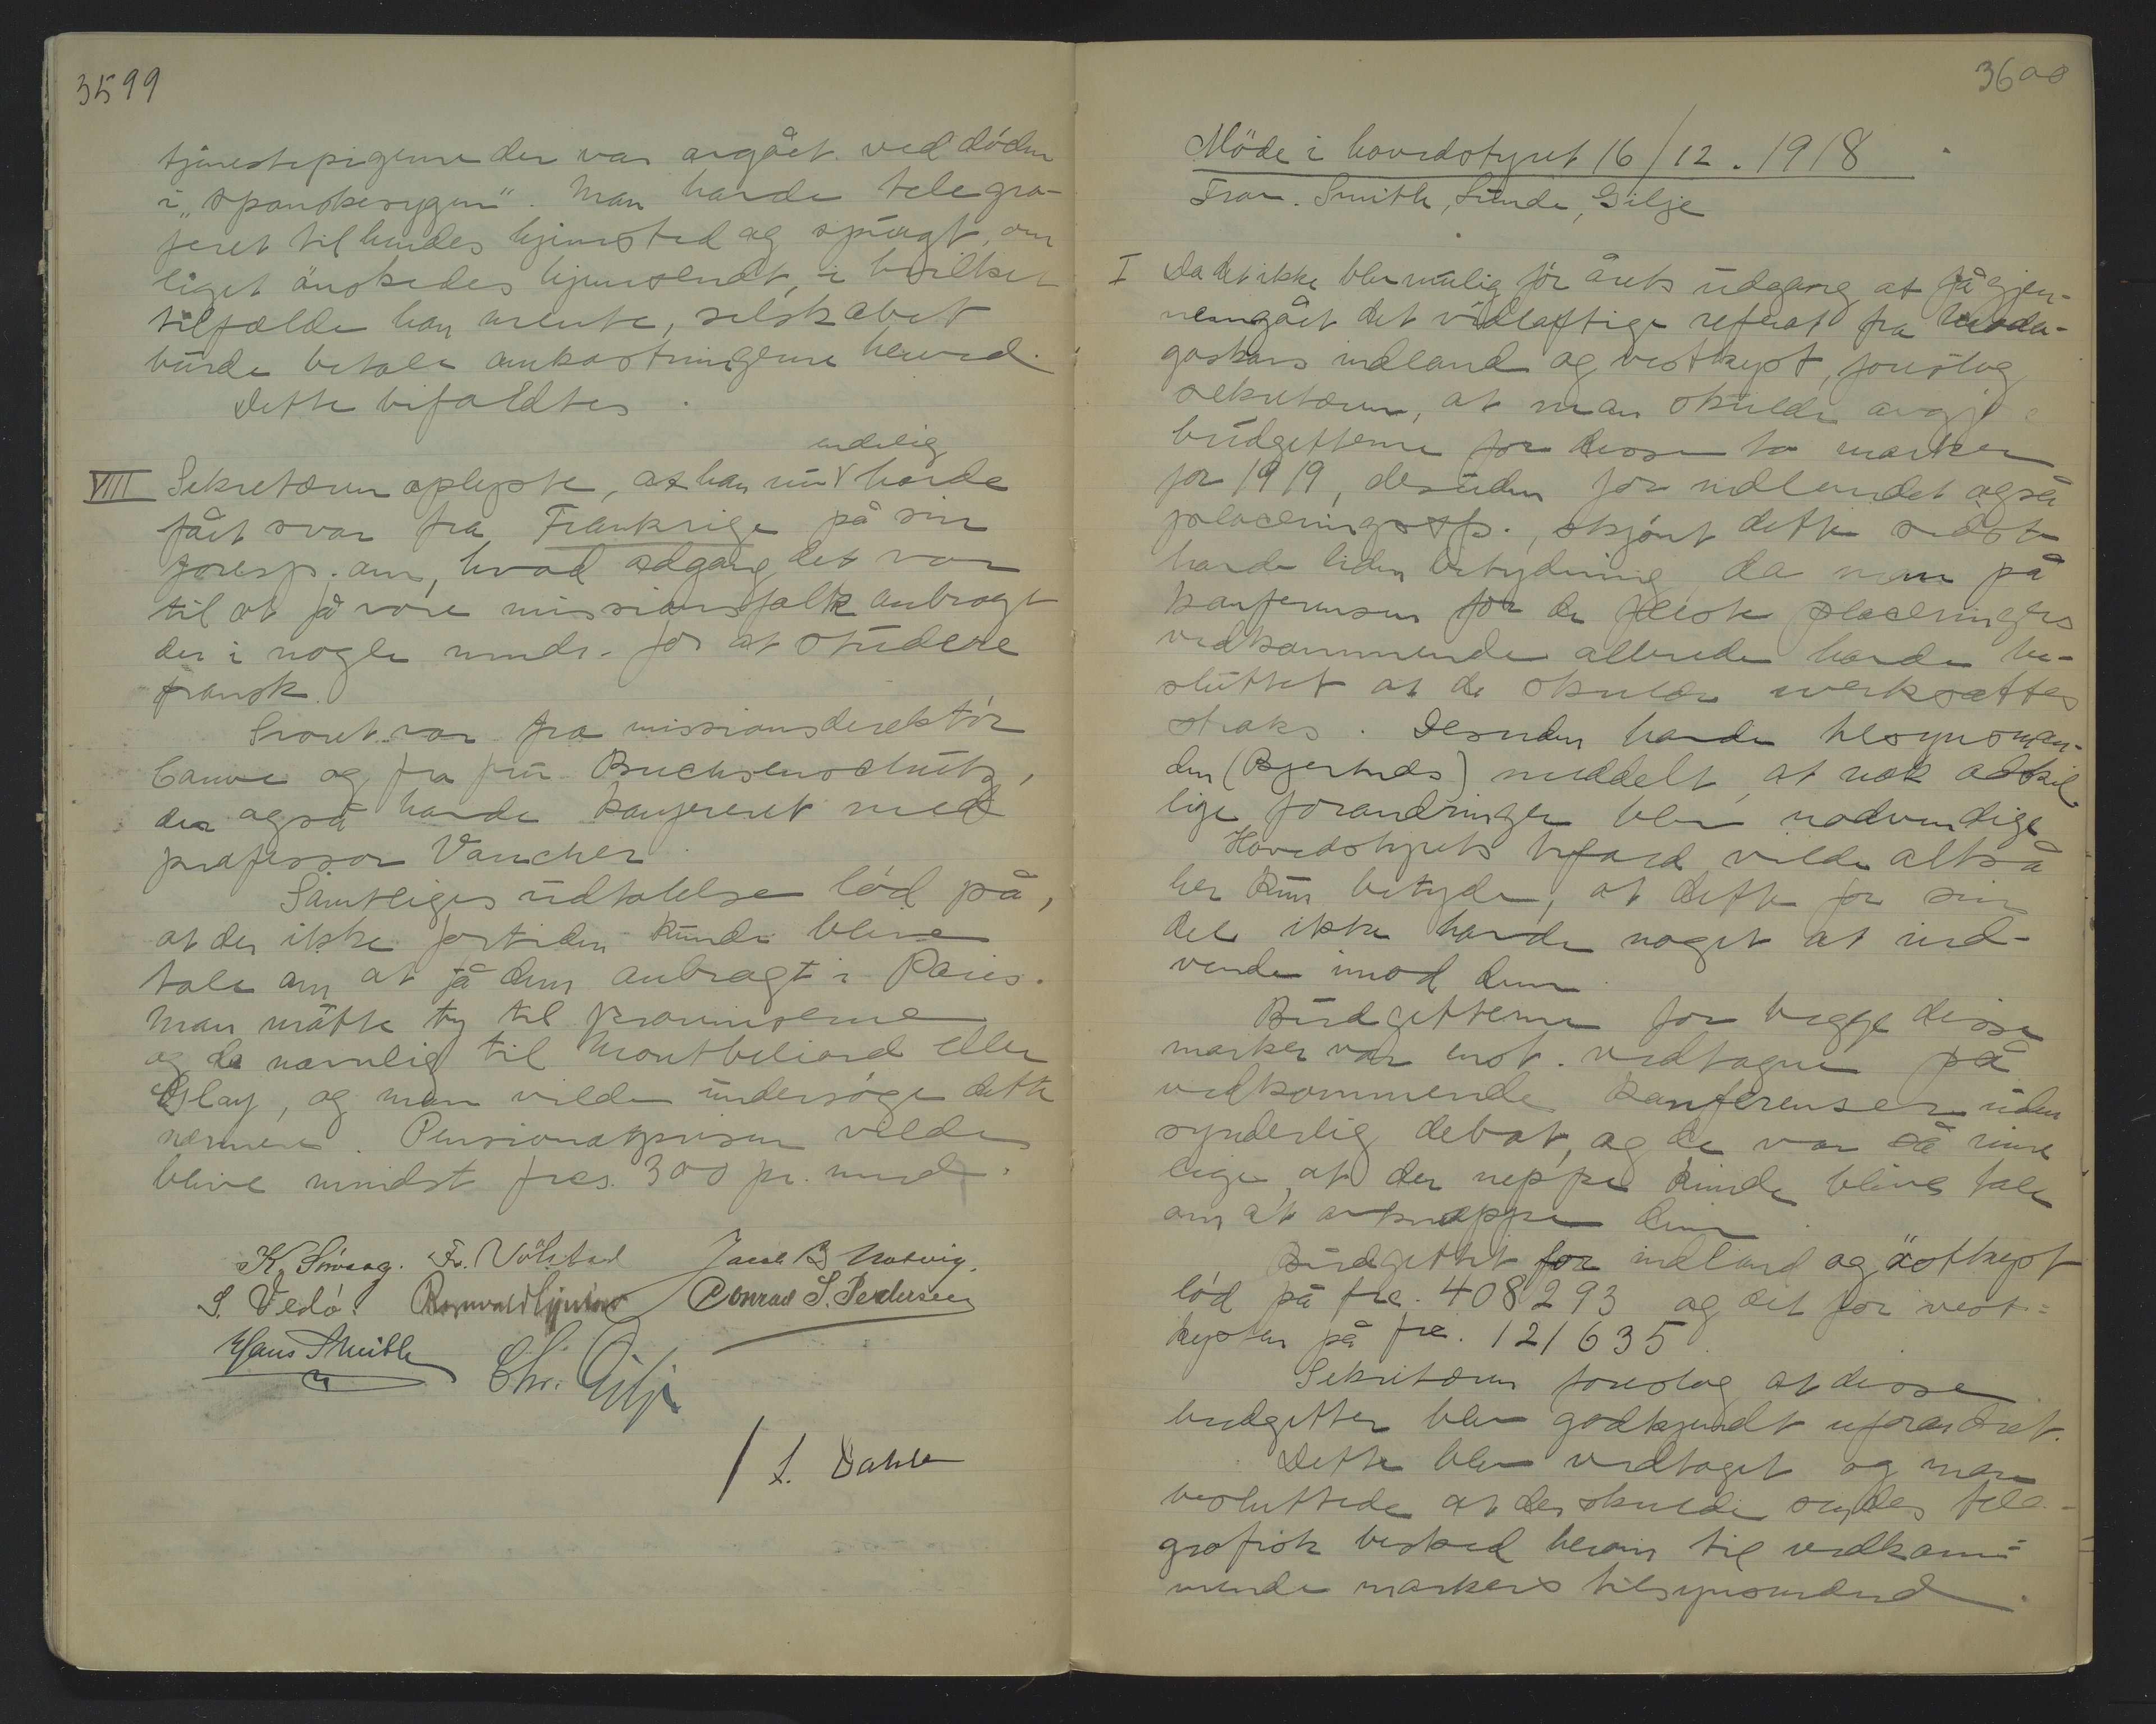 3599
tjenestepigerne der var avgået ved döden
i "spanskesygen". Man havde telegra-
feret til hendes hjemsted og spurgt, om
liget önskedes hjemsendt, i hvilket
tilfælde han mente, selskabet
burde betale omkostningerne herved.
Dette bifaldtes.
endelig
VIII Sekretæren oplyste, at han nu havde
fåt svar fra Frankrige på sin
foresp. om, hvad adgang det var
til at få vore missionsfolk anbragt
der i nogle mndr. for at studere
fransk.
Svaret var fra missionsdirektör
Couve og fra fru Buchsenschutz,
der også havde konfereret med
professor Vaucher.
Samtliges udtalelse löd på,
at der ikke fortiden kunde blive
tale om at få dem anbragt i Paris.
Man måtte ty til provinserne
og da navnlig til Montbeliard eller
Glay, og man vilde undersöge dette
nærmere. Pensionatprisen vilde
blive mindst frcs. 300 pr. mnd.
K. Fr. Vølstad Jacob B Natvig.
S. Vedö. Conrad S. Pedersen
Hans Smith Chr. Gilje
/ L. Dahle
3600
Möde i hovedstyret 16/12. 1918
Frav. Smith, Sunde, Gilje
I Da det ikke blev mulig för årets udgang at få gjen-
nemgået det vidløftige referat fra Mada-
gaskars indland og vestkyst, foreslog
sekretæren, at man skulde avgjöre
budgetterne for disse to marker
for 1919, desuden for indlandet også
placeringsfs., skjönt dette sidste
havde liden betydning da man på
konferensen for de fleste placeringers
vedkommende allerede havde be-
sluttet at de skulde iverksættes
straks. Desuden havde tilsynsman-
den (Bjertnæs) meddelt, at nok adskil-
lige forandringer blev nødvendige.
Hovedstyrets bifald vilde altså
her kun betyde, at dette for sin
del ikke havde noget at ind-
vende imod dem.
Budgetterne for begge disse
marker var enst. vedtagne på
vedkommende konferenser uden
synderlig debat, og de var så rime-
lige, at der neppe kunde blive tale
om at avknappe dem.
Budgettet for indland og östkyst
löd på frc. 408293 og det for vest-
kysten på frc. 121635.
Sekretæren foreslog at disse
budgetter blev godkjendt uforandret.
Dette blev vedtaget og man
besluttede at der skulde sendes tele-
grafisk besked herom til vedkom-
mende markers tilsynsmænd.